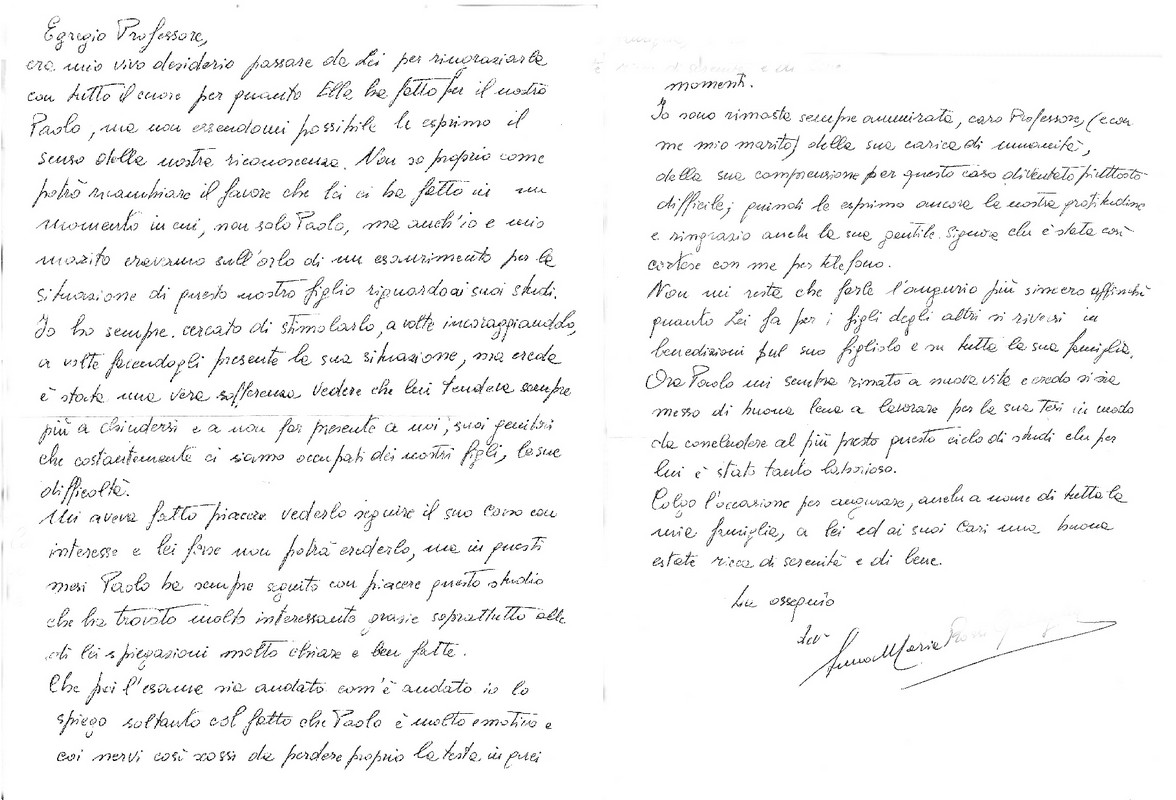 Egregio Professore,
era mio vivo desiderio passare da Lei per ringraziarLa
con tutto il cuore per quanto Ella ha fatto per il nostro
Paolo, ma non essendomi possibile le esprimo il
senso della nostra riconoscenza. Non so proprio come
potrò ricambiare il favore che lei ci ha fatto in un
momento in cui, non solo Paolo, ma anch'io e mio
marito eravamo sull'orlo di un esaurimento per la
situazione di questo nostro figlio riguardo ai suoi studi.
Io ho sempre cercato di stimolarlo, a volte incoraggiandolo,
a volte facendogli presente la sua situazione, ma creda
è stata una vera sofferenza vedere che lui tendeva sempre
più a chiudersi e a non far presente a noi, suoi genitori
che costantemente ci siamo occupati dei nostri figli, le sue
difficoltà.
Mi aveva fatto piacere vederlo seguire il suo Corso con
interesse e lei forse non potrà crederlo, ma in questi
mesi Paolo ha sempre seguito con piacere questo studio
che ha trovato molto interessante grazie soprattutto alle
di lei spiegazioni molto chiare e ben fatte.
Che poi l'esame sia andato com'è andato io lo
spiego soltanto col fatto che Paolo è molto emotivo e
coi nervi così scossi da perdere proprio la testa in quei
momenti.
Io sono rimasta sempre ammirata, caro Professore, (e con
me mio marito) della sua carica di umanità,
della sua comprensione per questo caso diventato piuttosto
difficile; quindi le esprimo ancora la nostra gratitudine
e ringrazio anche la sua gentile Signora che è stata così
cortese con me per telefono.
Non mi resta che farle l'augurio più sincero affinché
quanto Lei fa per i figli degli altri si riversi in
benedizioni sul suo figliolo e su tutta la sua famiglia.
Ora Paolo mi sembra rinato a nuova vita e credo si sia
messo di buona lena a lavorare per la sua Tesi in modo
da concludere al più presto questo ciclo di studi che per
lui è stato tanto laborioso.
Colgo l'occasione per augurare, anche a nome di tutta la
mia famiglia, a lei ed ai suoi Cari una buona
estate ricca di serenità e di bene.
Con ossequio
Anna Maria